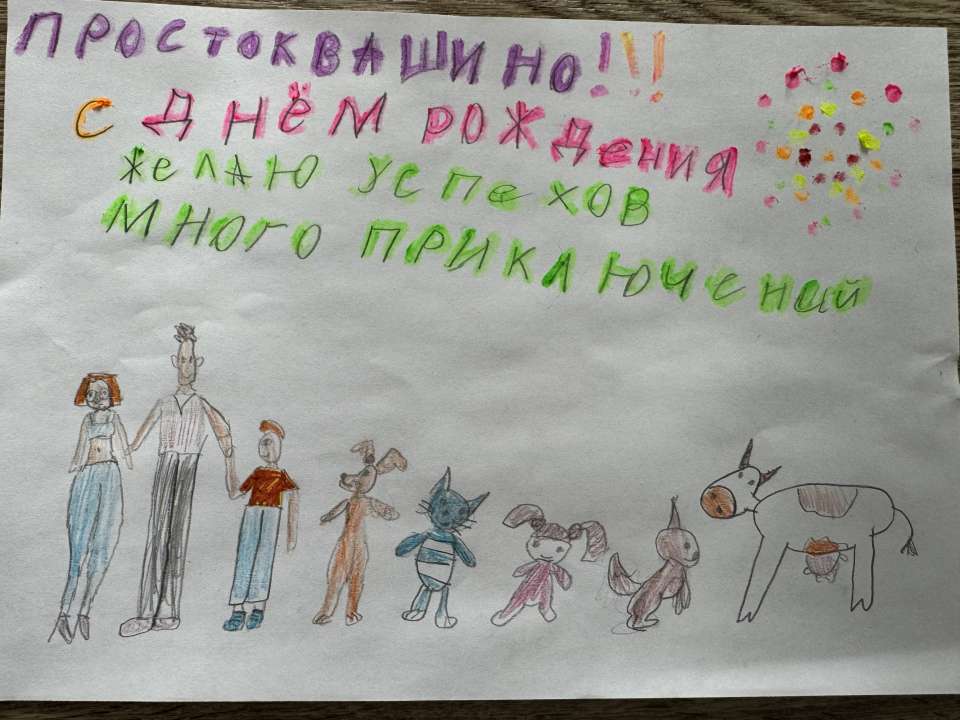 ПРОСТОКВАШИНО!!!
С ДНЁМ РОЖДЕНИЯ
ЖЕЛАЮ УСПЕХОВ
МНОГО ПРИКЛЮЧЕНИЙ